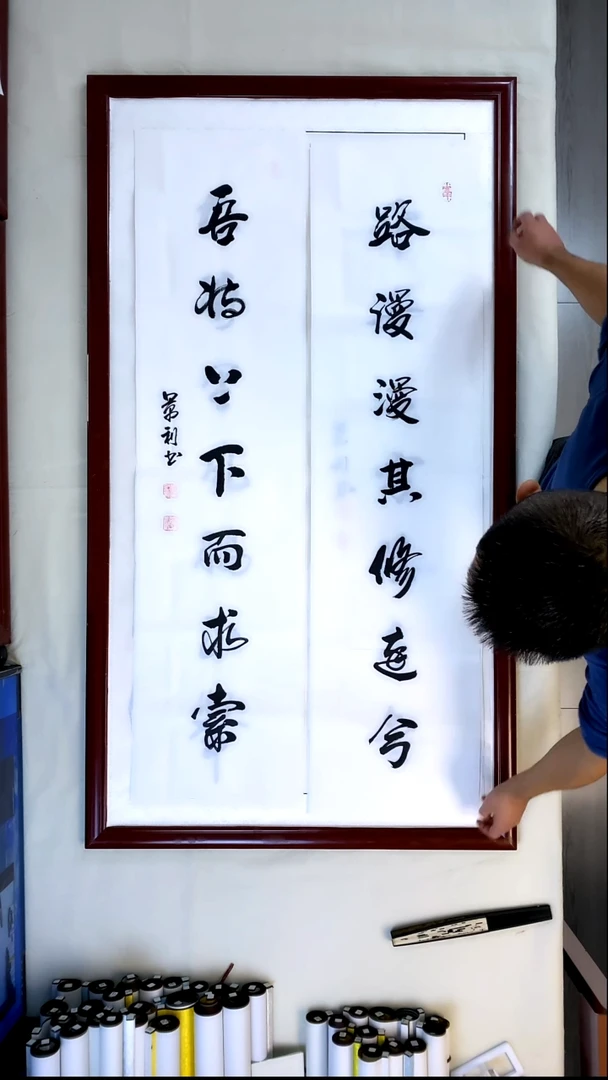 路漫漫其修远兮
吾将上下而求索
利书